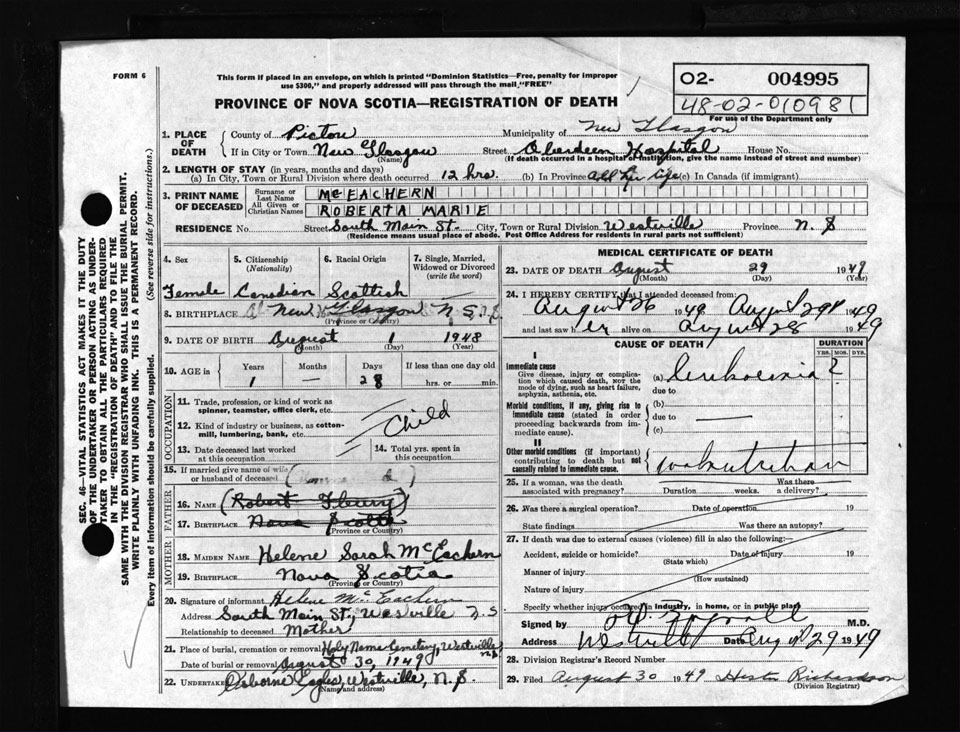 FORM 6
This form if placed in an envelope, on which is printed "Dominion Statistics—Free, penalty for improper
use $300," and properly addressed will pass through the mail "FREE"
02- 004995
48-02-010981
For use of the Department only
PROVINCE OF NOVA SCOTIA—REGISTRATION OF DEATH
1. PLACE OF DEATH
County of Pictou Municipality of New Glasgow
If in City or Town New Glasgow Street Aberdeen Hospital House No.
(Name) (If death occurred in a hospital or institution, give the name instead of street and number)
2. LENGTH OF STAY (in years, months and days)
(a) In City, Town or Rural Division where death occurred 12 hrs. (b) In Province All her life (c) In Canada (if immigrant)
3. PRINT NAME OF DECEASED
Surname or Last Name McEACHERN
All Given or Christian Names ROBERTA MARIE
RESIDENCE No. Street South Main St. City, Town or Rural Division Westville Province N.S
(Residence means usual place of abode. Post Office Address for residents in rural parts not sufficient)
4. Sex 5. Citizenship (Nationality) 6. Racial Origin 7. Single, Married, Widowed or Divorced (write the word)
Female Canadian Scottish
8. BIRTHPLACE New Glasgow N.S.
(Province or Country)
9. DATE OF BIRTH August 1 1948
(Month) (Day) (Year)
10. AGE in Years Months Days If less than one day old
1 — 28 hrs. or min.
OCCUPATION
11. Trade, profession, or kind of work as spinner, teamster, office clerk, etc.
12. Kind of industry or business, as cotton-mill, lumbering, bank, etc.
Child
13. Date deceased last worked at this occupation 14. Total yrs. spent in this occupation
15. If married give name of wife or husband of deceased
FATHER
16. NAME (Robert Fleury)
17. BIRTHPLACE Nova Scotia
(Province or Country)
MOTHER
18. MAIDEN NAME Helene Sarah McEachern
19. BIRTHPLACE Nova Scotia
(Province or Country)
20. Signature of informant Helene McEachern
Address South Main St., Wesville N.S
Relationship to deceased Mother
21. Place of burial, cremation or removal Holy Name Cemetery, Westville N.S
Date of burial or removal August 30, 1949
22. UNDERTAKER Osborne Eagles, Westville, N.S.
(Name and address)
MEDICAL CERTIFICATE OF DEATH
23. DATE OF DEATH August 29 1949
(Month) (Day)
24. I HEREBY CERTIFY that I attended deceased from:
August 26 1949 August 29 1949
and last saw her alive on August 28 1949
CAUSE OF DEATH DURATION
YRS. MOS. DYS.
I
Immediate cause
Give disease, injury or complication which caused death, NOT the mode of dying, such as heart failure, asphyxia, asthenia, etc.
(a) Leukaemia 2
due to
Morbid conditions, if any, giving rise to immediate cause (stated in order proceeding backwards from immediate cause).
(b)
due to
(c)
II
Other morbid conditions (if important) contributing to death but not causally related to immediate cause.
malnutrition
25. If a woman, was the death associated with pregnancy? Duration weeks. Was there a delivery?
26. Was there a surgical operation? Date of operation 19
State findings Was there an autopsy?
27. If death was due to external causes (violence) fill in also the following:—
Accident, suicide or homicide? Date of injury 19
(State which)
Manner of injury
(How sustained)
Nature of injury
Specify whether injury occurred in industry, in home, or in public place
Signed by M.D.
Address Westville Date Aug 29 1949
28. Division Registrar's Record Number
29. Filed August 30 1949 Hester Richardson
(Division Registrar)
SEC. 46—VITAL STATISTICS ACT MAKES IT THE DUTY
OF THE UNDERTAKER OR PERSON ACTING AS UNDER-
TAKER TO OBTAIN ALL THE PARTICULARS REQUIRED
IN THE "REGISTRATION OF DEATH" AND TO FILE THE
SAME WITH THE DIVISION REGISTRAR WHO SHALL ISSUE THE BURIAL PERMIT.
WRITE PLAINLY WITH UNFADING INK. THIS IS A PERMANENT RECORD.
Every item of information should be carefully supplied. (See reverse side for instructions.)